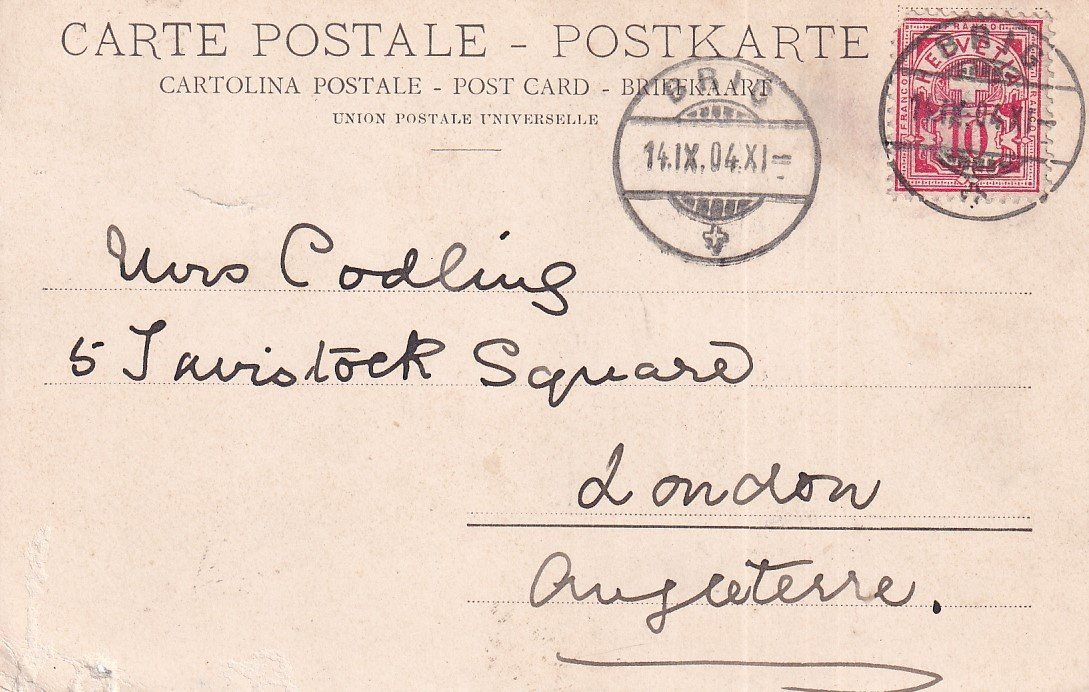 CARTE POSTALE - POSTKARTE
CARTOLINA POSTALE - POST CARD - BRIEFKAART
UNION POSTALE UNIVERSELLE
BRIG
14.IX.04.XI
HELVETIA
FRANCO
FRANCO
FRANCO
10
BRIG
14.IX.04.XI
Mrs Codling
5 Tavistock Square
London
Angleterre.